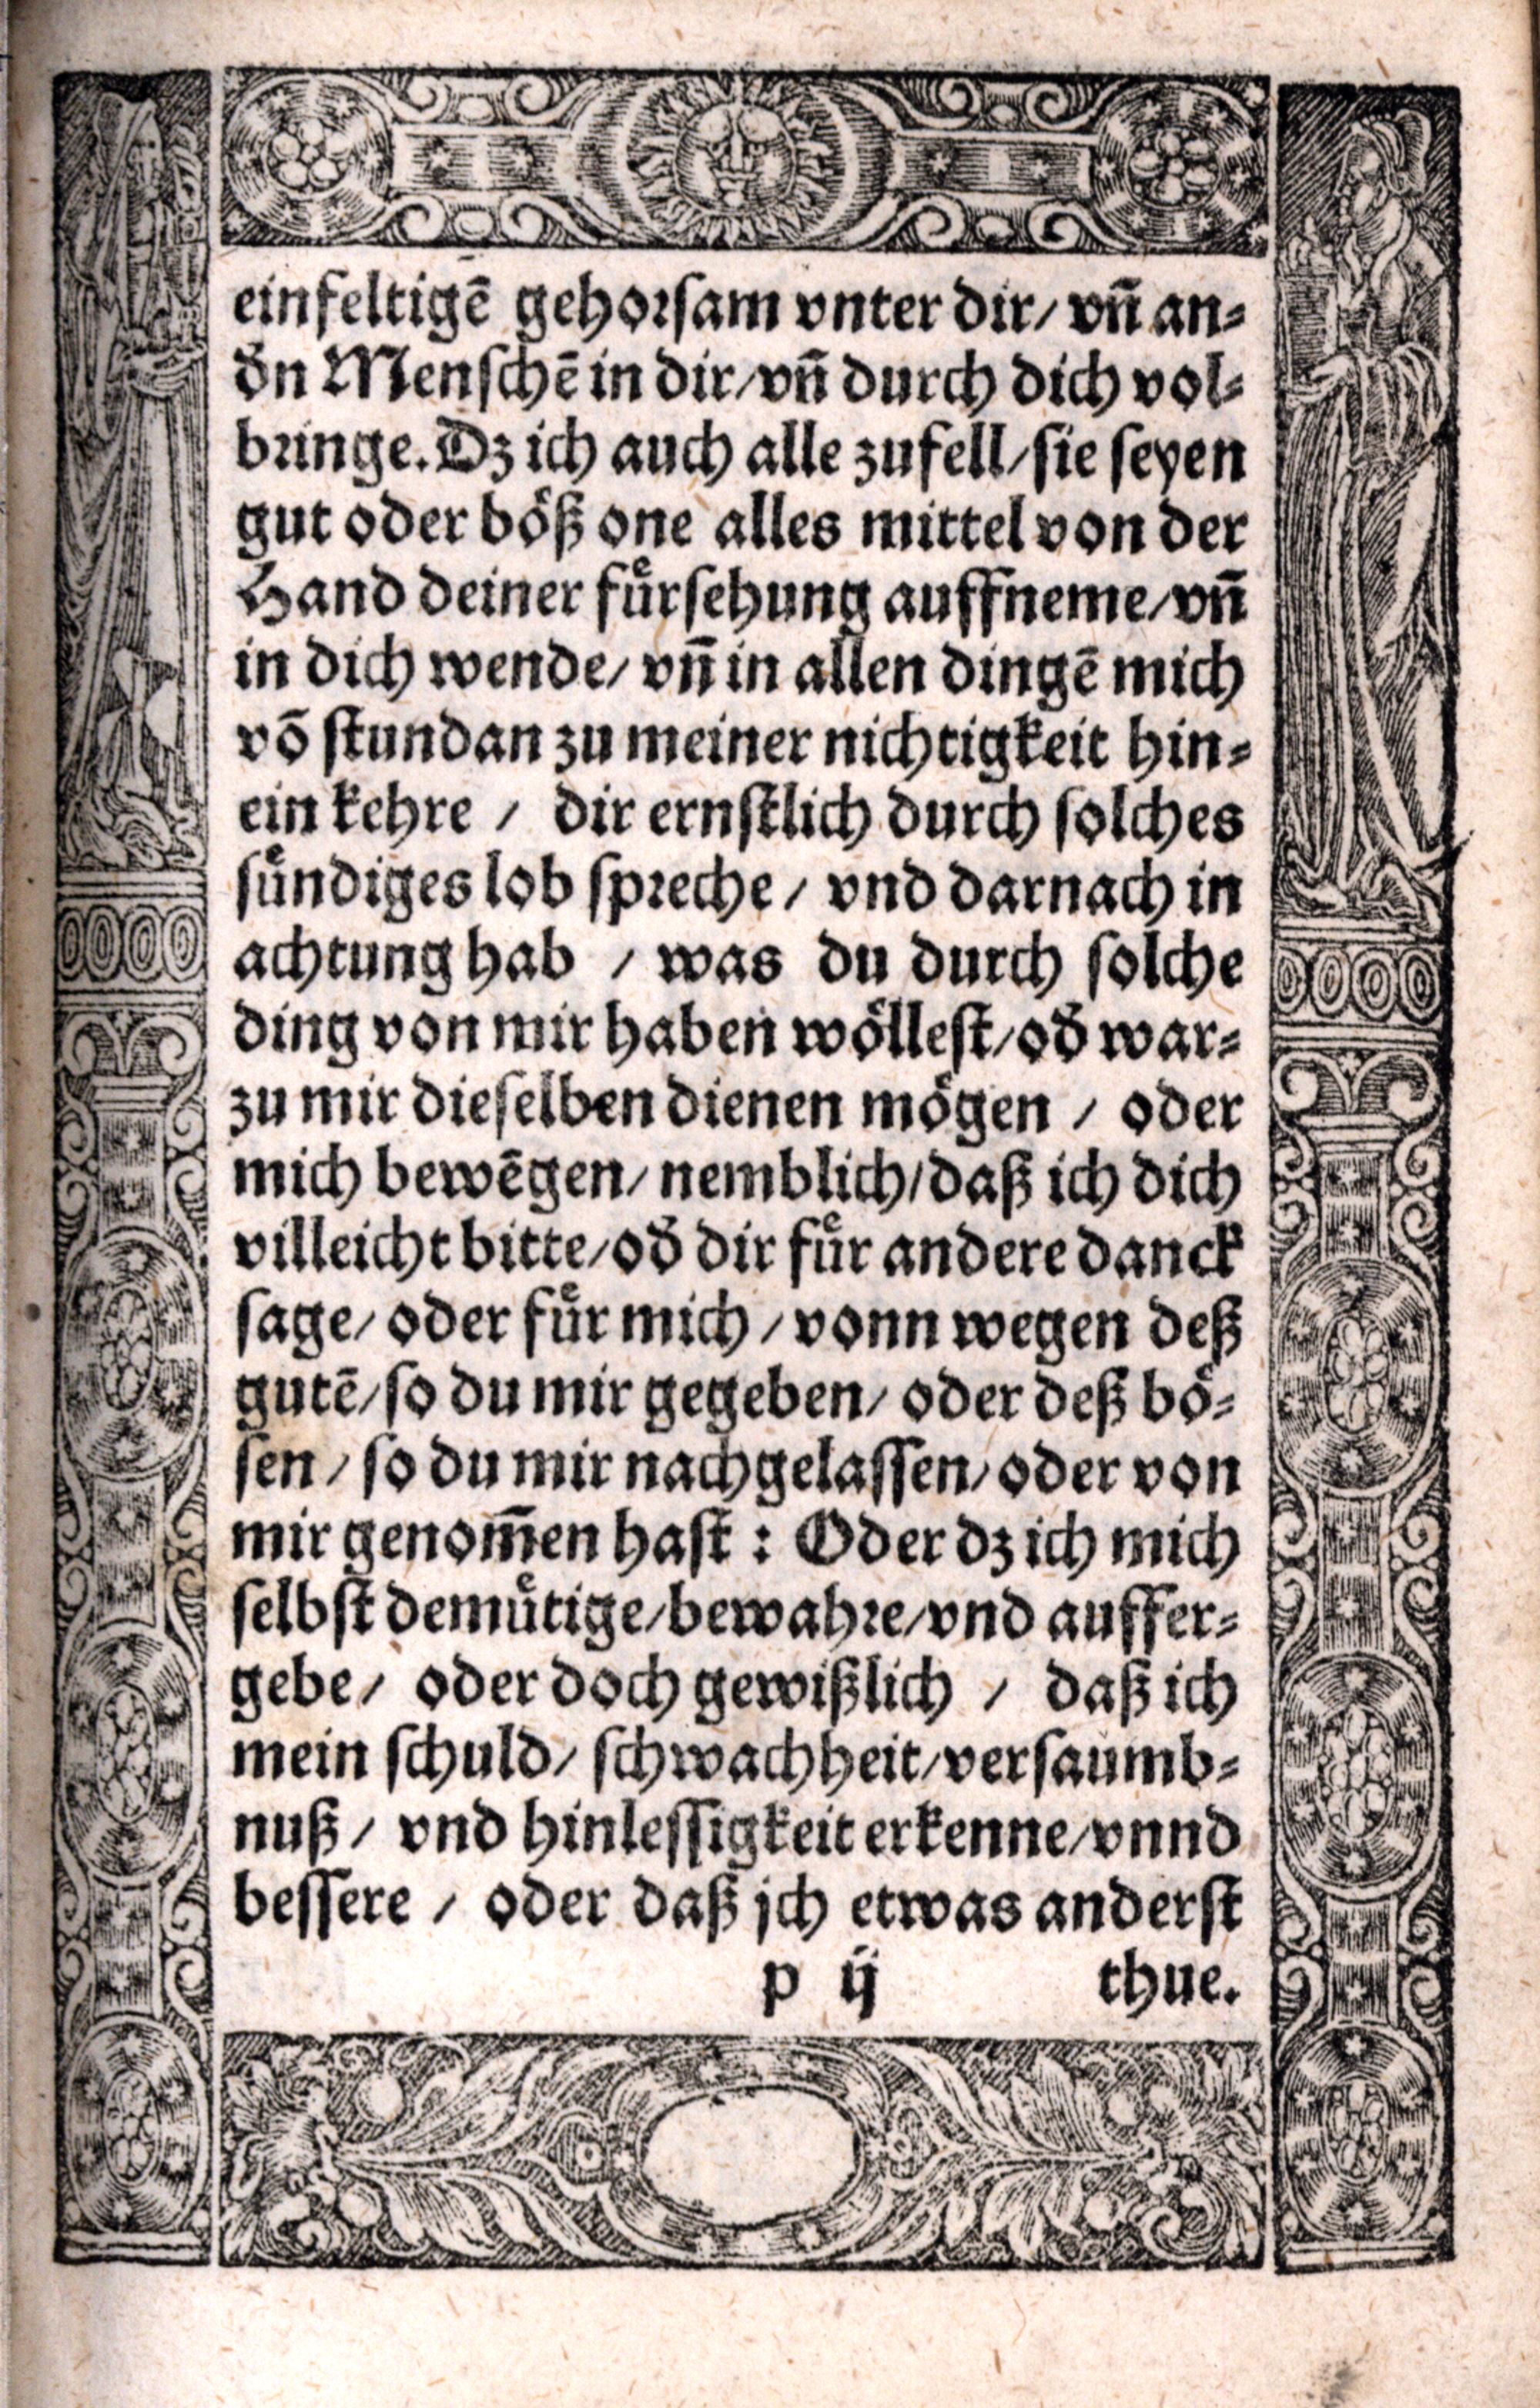 einfeltigē gehorsam vnter dir/ vñ an⸗
dn̄ Menschē in dir/vñ durch dich vol⸗
bringe. Dz ich auch alle zufell/sie seyen
gut oder böß one alles mittel von der
Hand deiner fürsehung auffneme/vñ
in dich wende/ vñ in allen dingē mich
vō stundan zu meiner nichtigkeit hin⸗
ein kehre / dir ernstlich durch solches
sündiges lob spreche/ vnd darnach in
achtung hab / was du durch solche
ding von mir haben wöllest/od̄ war⸗
zu mir dieselben dienen mögen / oder
mich bewēgen/ nemblich/daß ich dich
villeicht bitte/od̄ dir für andere danck
sage/ oder für mich / vonn wegen deß
gutē/so du mir gegeben/ oder deß bö⸗
sen / so du mir nachgelassen/oder von
mir genom̄en hast : Oder dz ich mich
selbst demütige/bewahre/vnd auffer⸗
gebe/ oder doch gewißlich / daß ich
mein schuld/ schwachheit/versaumb⸗
nuß/ vnd hinlessigkeit erkenne/vnnd
bessere / oder daß jch etwas anderst
p ij thue.